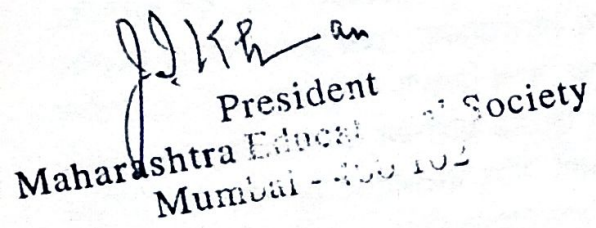 J.I.Khan
President
Maharashtra Educational Society
Mumbai - 400 102